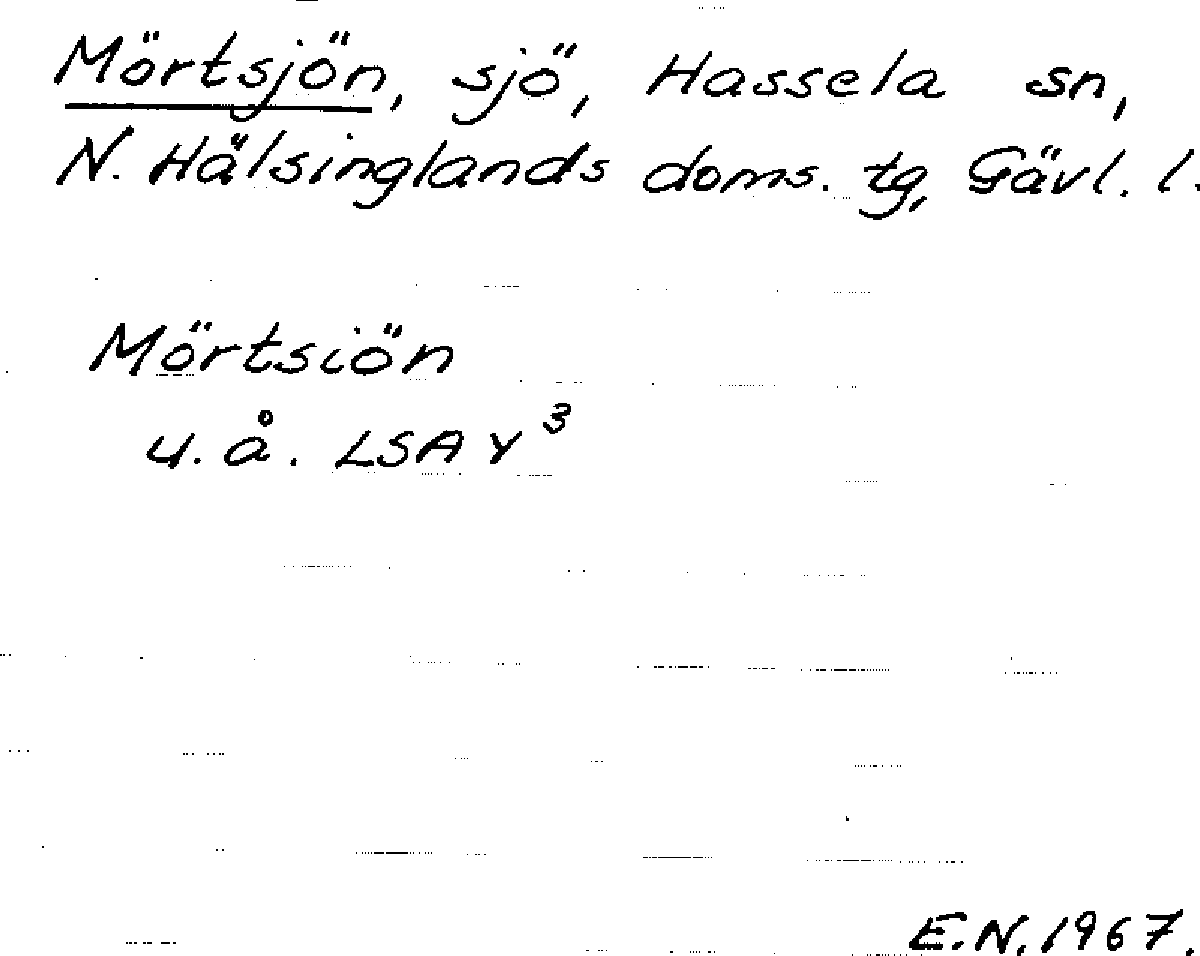 Mörtsjön, sjö, Hassela sn,
N. Hälsinglands doms. tg, Gävl. l.
Mörtsiön
u. å. LSA Y³
E.N. 1967.